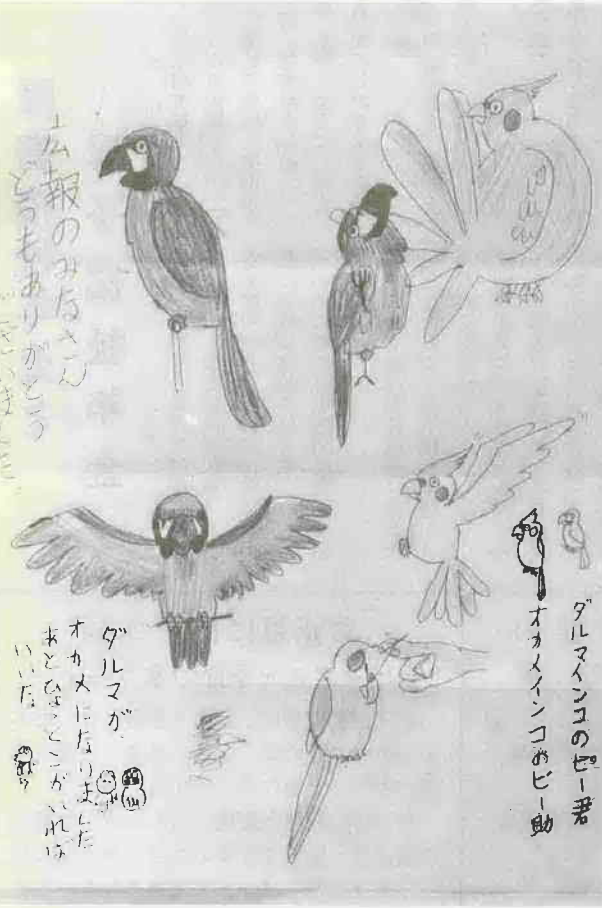 ダルマインコのピー君
オカメインコのピー助
広報のみなさん
どうもありがとう
ダルマが、
オカメになりました
あとひょっとこがいれば
いいな